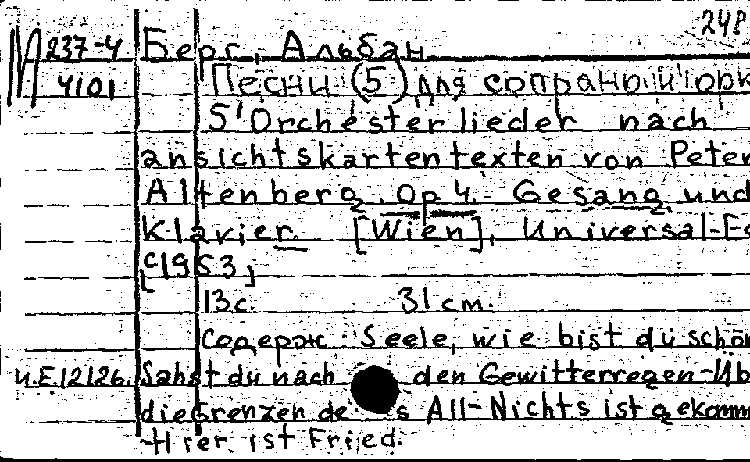 248
М 237-4 Берг, Альбан
4101 Песни (5) для сопрано и орк
5 Orchesterlieder nach
ansichtskartentexten von Peter
Altenberg. Op 4. Gesang und
Klavier [Wien], Universal-Ed
[c1953]
13с. 31 cm.
Содерж: Seele, wie bist du schön
U.E.12126. Sahst du nach den Gewitterregen-Üb
die Grenzen de s All-Nichts ist gekomm
Hier ist Fried.